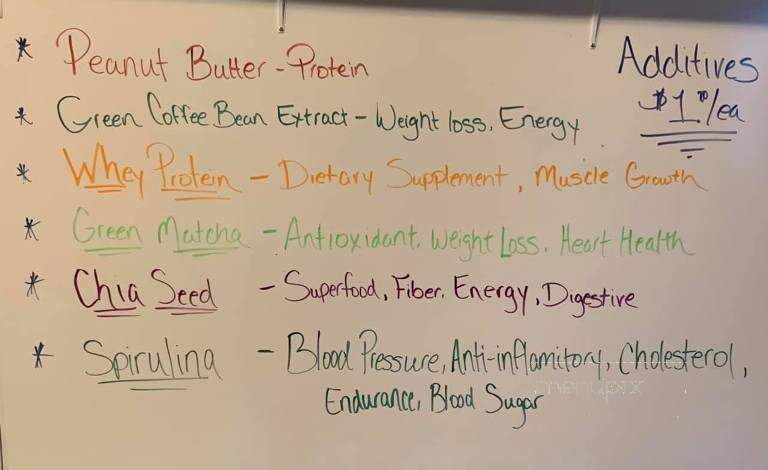 * Peanut Butter - Protein
Additives
$1.00/ea
* Green Coffee Bean Extract - Weight loss, Energy
* Whey Protein - Dietary Supplement, Muscle Growth
* Green Matcha - Antioxidant, Weight Loss, Heart Health
* Chia Seed - Superfood, Fiber, Energy, Digestive
* Spirulina - Blood Pressure, Anti-inflamitory, Cholesterol,
Endurance, Blood Sugar
menupix